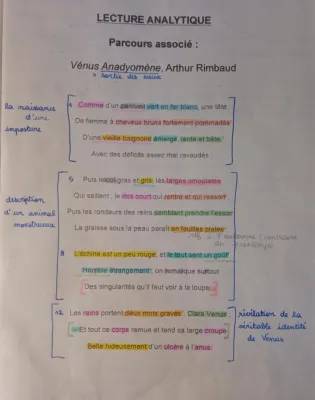 LECTURE ANALYTIQUE
Parcours associé :
Vénus Anadyomène, Arthur Rimbaud
= sortie des eaux
la naissance
d'une
imposture
Comme d'un cercueil vert en fer blanc, une tête
De femme à cheveux bruns fortement pommadés
D'une vieille baignoire émerge, lente et bête,
Avec des déficits assez mal ravaudés
description
d'un animal
monstrueux
5 Puis le col gras et gris, les larges omoplates
Qui saillent ; le dos court qui rentre et qui ressort
Puis les rondeurs des reins semblent prendre l'essor
La graisse sous la peau paraît en feuilles plates
8 L'échine est un peu rouge, et le tout sent un goût
Horrible étrangement ; on remarque surtout
Des singularités qu'il faut voir à la loupe
révélation de la
véritable identité
de Vénus
12 Les reins portent deux mots gravés : Clara Venus
Et tout ce corps remue et tend sa large croupe
Belle hideusement d'un ulcère à l'anus.